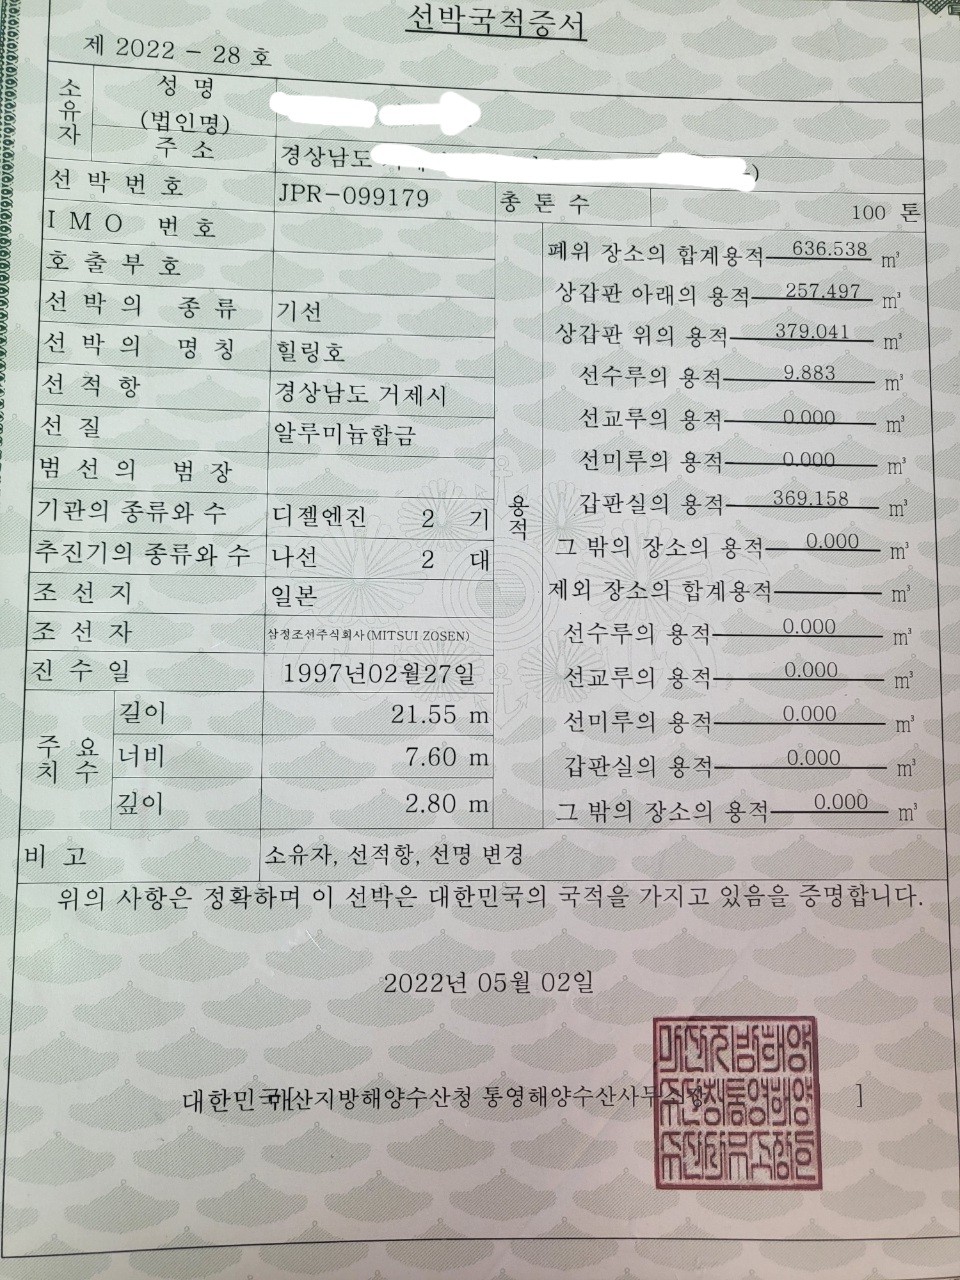 선박국적증서
제 2022 - 28 호
소유자
성 명
(법인명)
주 소
경상남도
)
선 박 번 호 JPR-099179 총 톤 수 100 톤
I M O 번 호
호 출 부 호
선 박 의 종 류 기선
선 박 의 명 칭 힐링호
선 적 항 경상남도 거제시
선 질 알루미늄합금
범 선 의 범 장
기관의 종류와 수 디젤엔진 2 기
추진기의 종류와 수 나선 2 대
조 선 지 일본
조 선 자 삼정조선주식회사(MITSUI ZOSEN)
진 수 일 1997년02월27일
주 요 치 수
길이 21.55 m
너비 7.60 m
깊이 2.80 m
용적
폐위 장소의 합계용적 636.538 m³
상갑판 아래의 용적 257.497 m³
상갑판 위의 용적 379.041 m³
선수루의 용적 9.883 m³
선교루의 용적 0.000 m³
선미루의 용적 0.000 m³
갑판실의 용적 369.158 m³
그 밖의 장소의 용적 0.000 m³
제외 장소의 합계용적 m³
선수루의 용적 0.000 m³
선교루의 용적 0.000 m³
선미루의 용적 0.000 m³
갑판실의 용적 0.000 m³
그 밖의 장소의 용적 0.000 m³
비 고 소유자, 선적항, 선명 변경
위의 사항은 정확하며 이 선박은 대한민국의 국적을 가지고 있음을 증명합니다.
2022년 05월 02일
대한민국 [마산지방해양수산청 통영해양수산사무소장 ]